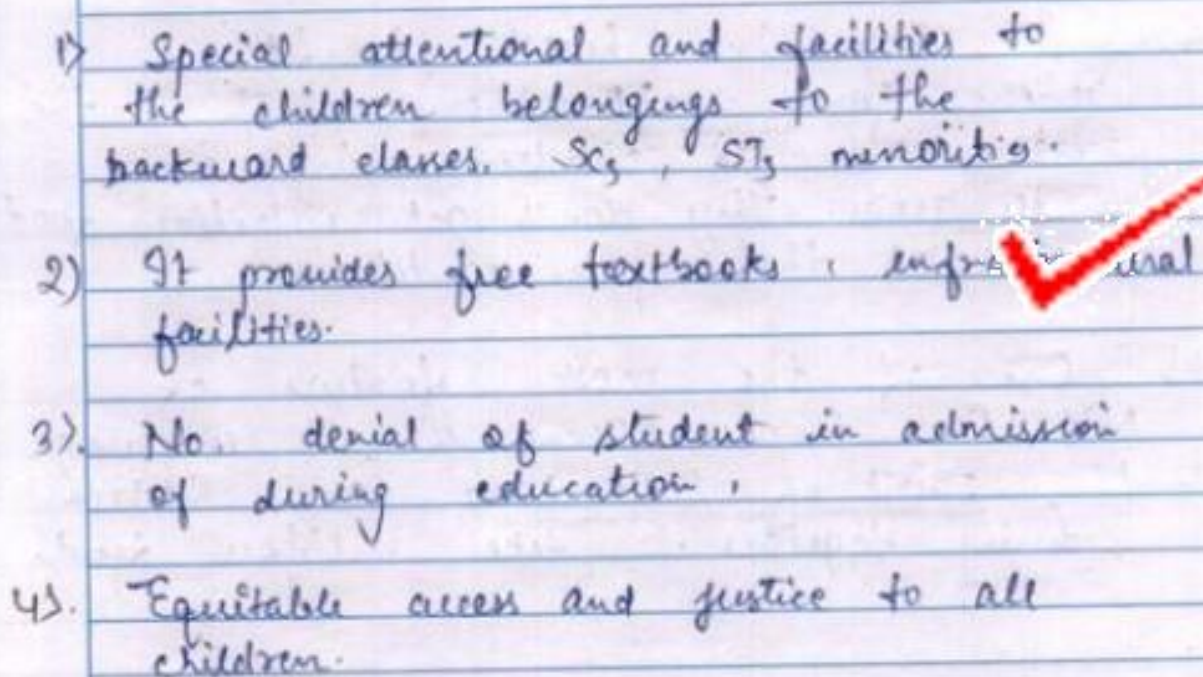 1) Special attentional and facilities to
the children belongings to the
backward classes. SCs, STs minorities.
2) It provides free textbooks,
facilities.
3). No. denial of student in admission
of during education,
4). Equitable access and justice to all
children.